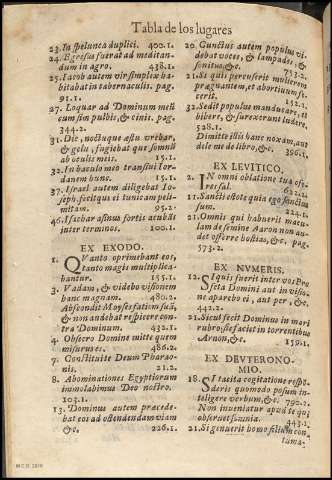 Tabla de los lugares
23. In spelunca duplici. 400.1.
24. Egressus fuerat ad meditan-
dum in agro. 438.1.
25. Iacob autem vir simplex ha-
bitabat in tabernaculis. pag.
91.1.
27. Loquar ad Dominum meũ
cum sim pulvis, & cinis. pag.
344.2.
31. Die, noctuque æstu vrebar,
& gelu, fugiebat que somnus
ab oculis meis. 15.1.
32. In baculo meo transivi Ior-
danem hunc. 15.1.
37. Israel autem diligebat Io-
seph, fecitque ei tunicam pelli-
mitam. 95.2.
46. Isachar asinus fortis acubãs
inter terminos. 100.1.
EX EXODO.
1. QVanto opprimebant eos,
tanto magis multiplica-
bantur. 155.1.
3. Vadam, & videbo visionem
hanc magnam. 480.2.
Abscondit Moyses faciem suã,
& non audebat respicere con-
tra Dominum. 432.1.
4. Obsecro Domine mitte quem
missurus es. 486.2.
7. Constitui te Deum Pharao-
nis. 21.2.
8. Abominationes Egyptiorum
immolabimus Deo nostro.
103.1.
13. Dominus autem præcede-
bat eos ad ostendendam viam
&c. 226.1.
20. Cunctus autem populus vi-
debat voces, & lampades, &
sonitus, &c. 753.2.
21. Si quis percusserit mulierem
prægnantem, et abortium fe-
cerit. 152.1.
32. Sedit populus manducare, et
bibere, & surexerunt ludere.
528.1.
Dimitte illis hanc noxam, aut
dele me de libro, &c. 396.1.
EX LEVITICO.
2. IN omni oblatione tua of-
fres sal. 622.2.
11. Sancti estote quia ego sanctus
sum. 224.1.
21. Omnis qui habuerit macu-
lam de semine Aaron non au-
det offerre hostias, &c. pag.
573.2.
EX NVMERIS.
12. SI quis fuerit inter vos Pro
feta Domini aut in visio-
ne aparebo ei, aut per, &c.
442.2.
21. Sicut fecit Dominus in mari
rubro; sic faciat in torrentibus
Arnon, &c. 159.1.
EX DEVTERONO-
MIO.
18. SI tacita cogitatione respõ-
deris quomodo possum in-
teligere verbum, &c. 792.2.
Non inveniatur apud te qui
observet somnia. 443.1.
21. Si genuerit homo filium con
tuma-